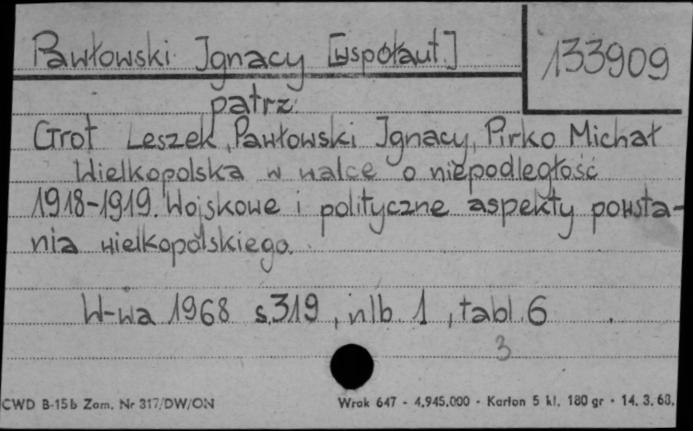 Pawłowski Ignacy [współaut.]
133909
patrz:
Grot Leszek, Pawłowski Ignacy, Pirko Michał
Wielkopolska w walce o niepodległość
1918-1919. Wojskowe i polityczne aspekty powsta-
nia wielkopolskiego.
W-wa 1968 s.319, nlb. 1, tabl. 6
3
CWD B-15b Zam. Nr 317/DW/ON
Wrak 647 - 4.945.000 - Karton 5 kl. 180 gr - 14. 3. 68.